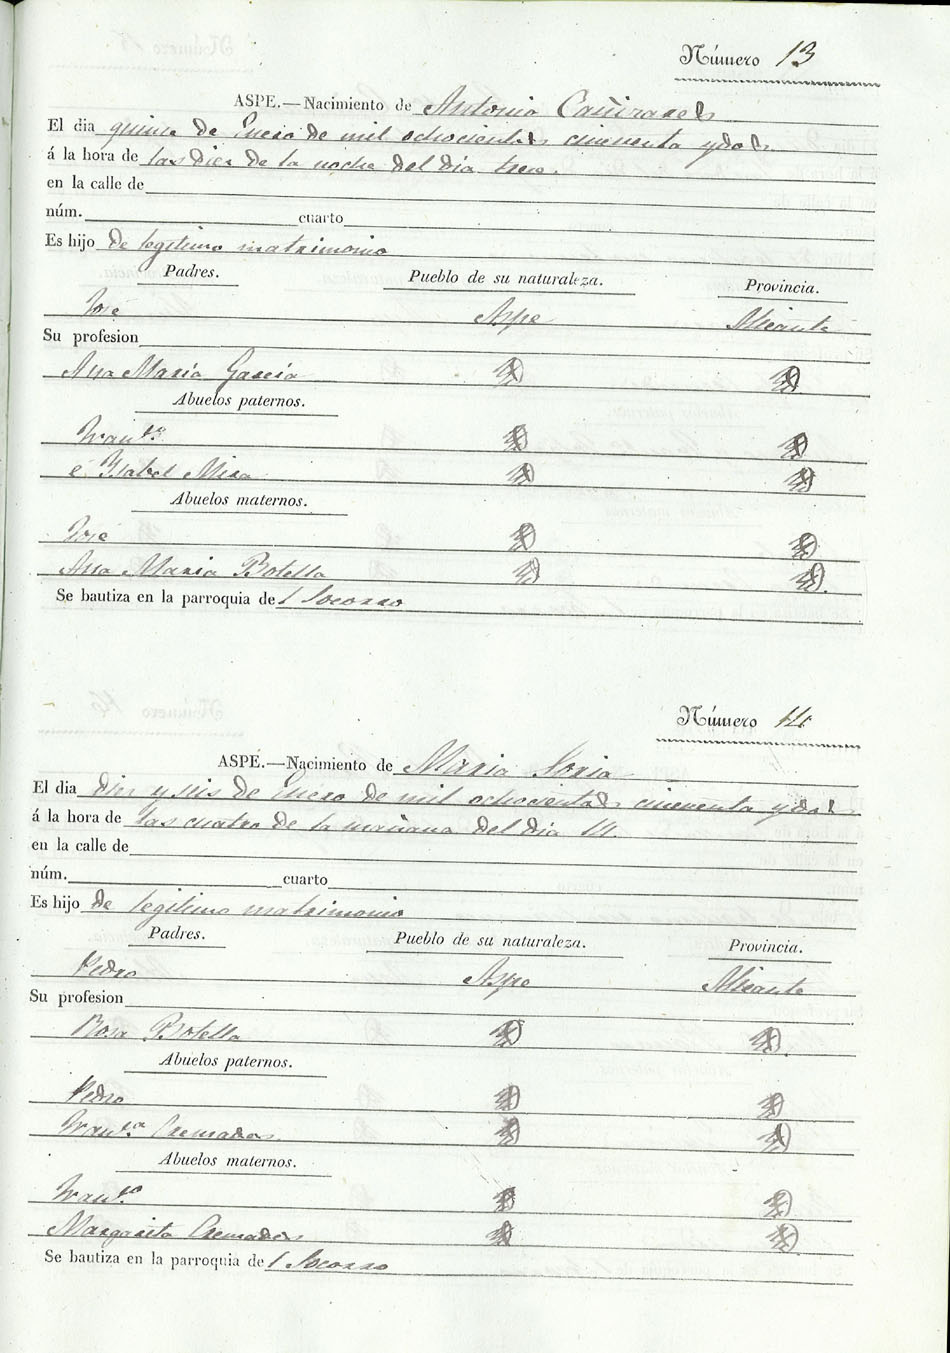 Número 13
ASPE.—Nacimiento de Antonio Cañizares
El dia quince de Enero de mil ochocientos cincuenta y dos
á la hora de las diez de la noche del dia trece.
en la calle de
núm. cuarto
Es hijo de legitimo matrimonio
Padres. Pueblo de su naturaleza. Provincia.
Jose Aspe Alicante
Su profesion
Ana Maria Garcia
Abuelos paternos.
Franco.
e Ysabel Mira
Abuelos maternos.
Jose
Ana Maria Botella
Se bautiza en la parroquia del Socorro
Número 14
ASPE.—Nacimiento de Maria Soria
El dia diez y seis de Enero de mil ochocientos cincuenta y dos
á la hora de las cuatro de la mañana del dia 14.
en la calle de
núm. cuarto
Es hijo de legitimo matrimonio
Padres. Pueblo de su naturaleza. Provincia.
Pedro Aspe Alicante
Su profesion
Rosa Botella
Abuelos paternos.
Pedro
Franca. Cremades
Abuelos maternos.
Franco.
Margarita Cremades
Se bautiza en la parroquia del Socorro